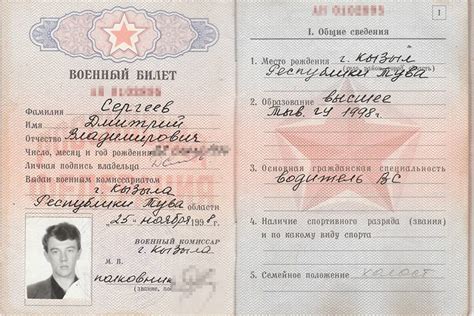 ВОЕННЫЙ БИЛЕТ
Фамилия Сергеев
Имя Дмитрий
Отчество Владимирович
Число, месяц и год рождения
Личная подпись владельца
Выдан военным комиссариатом
г. Кызыла
Республики Тува
области
25 ноября 1998 г.
ВОЕННЫЙ КОМИССАР
г. Кызыла
М. П.
полковник
(звание,
1
I. Общие сведения
1. Место рождения г. Кызыл
Республики Тува
2. Образование высшее
Тыв. ГУ 1998г.
3. Основная гражданская специальность
водитель ВС
4. Наличие спортивного разряда (звания)
и по какому виду спорта
5. Семейное положение холост